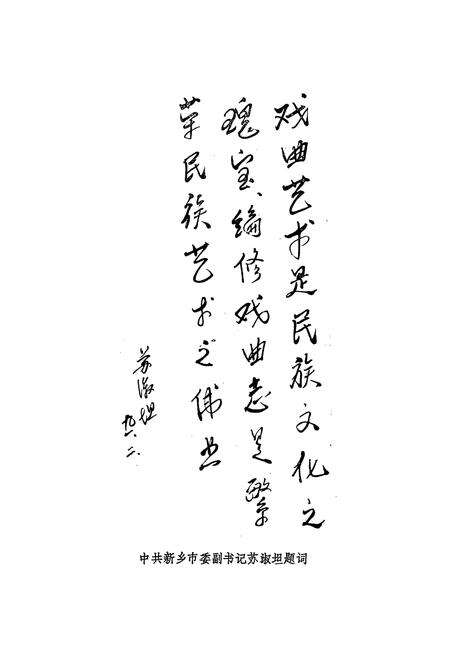 戏曲艺术是民族文化之
瑰宝、编修戏曲志是繁
荣民族艺术之伟业
苏淑坦
九一.二.
中共新乡市委副书记苏淑坦题词